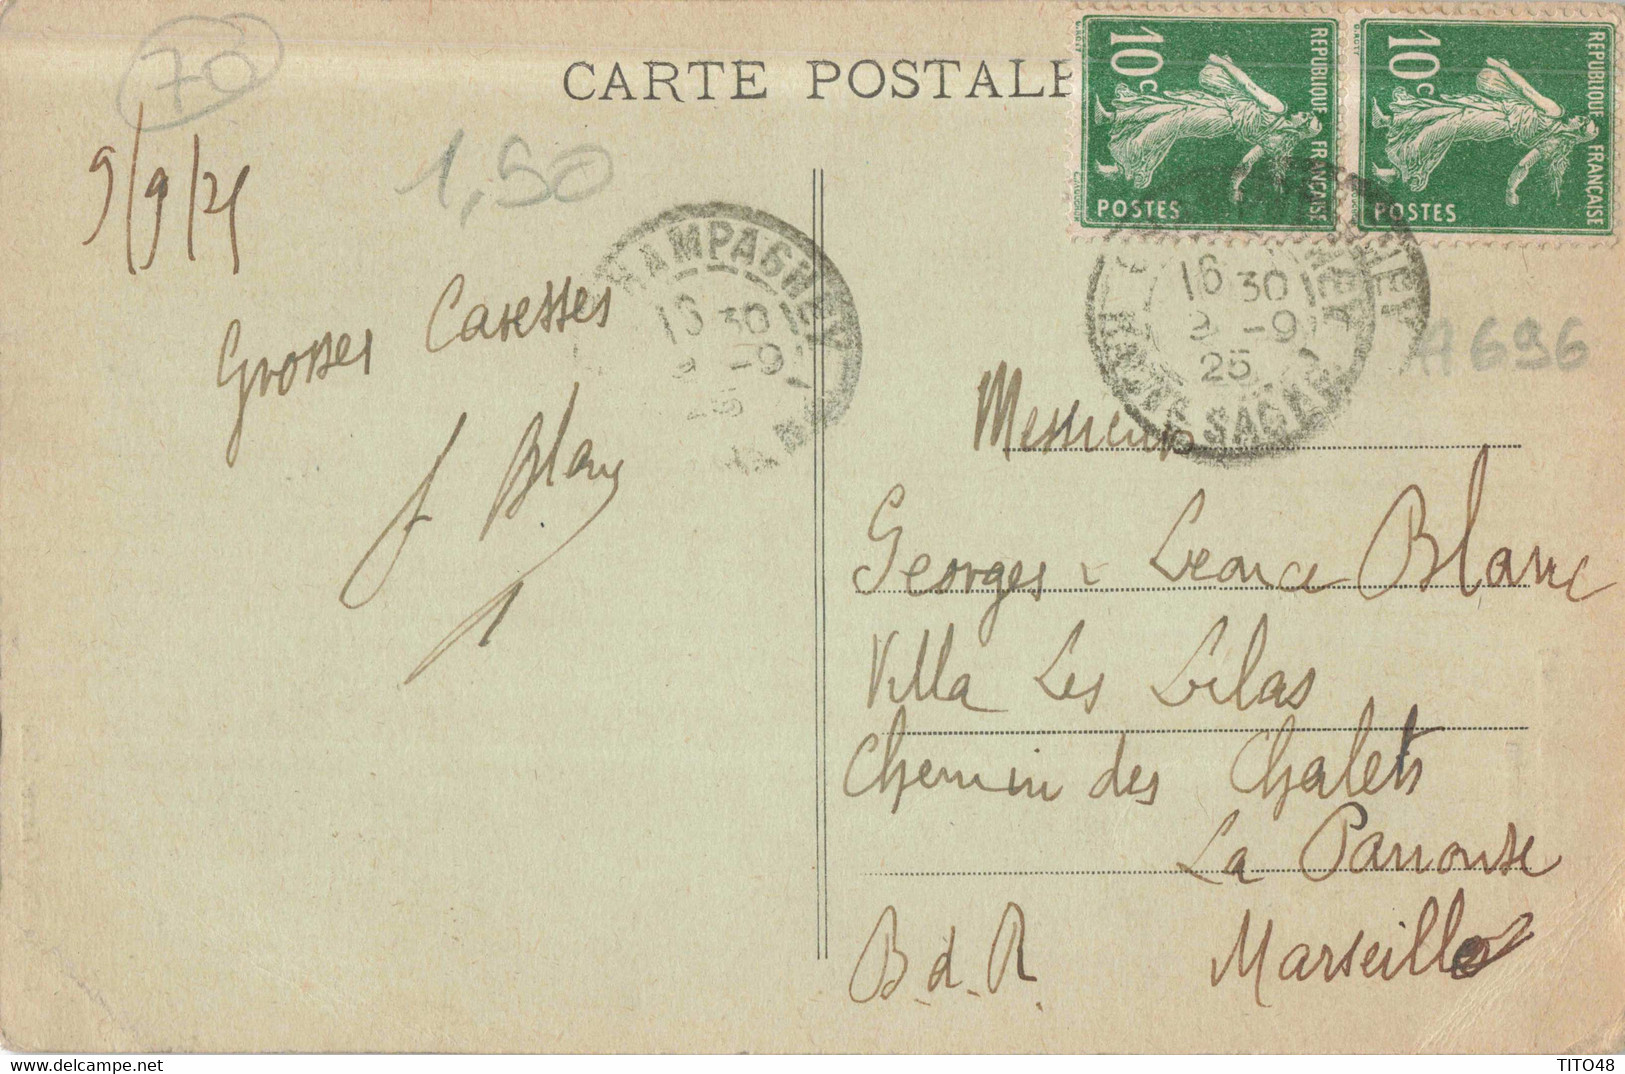 70
CARTE POSTALE
10c
REPUBLIQUE FRANÇAISE
POSTES
10c
REPUBLIQUE FRANÇAISE
POSTES
9/9/25
1,50
CHAMPAGNEY
16 30
9 -9
25
16 30
9 -9
25
A696
Grosses Caresses
J Blanc
Messieurs
Georges & Leonce Blanc
Villa Les Lilas
Chemin des Chalets
La Panouse
B.d.R. Marseille
TITO48